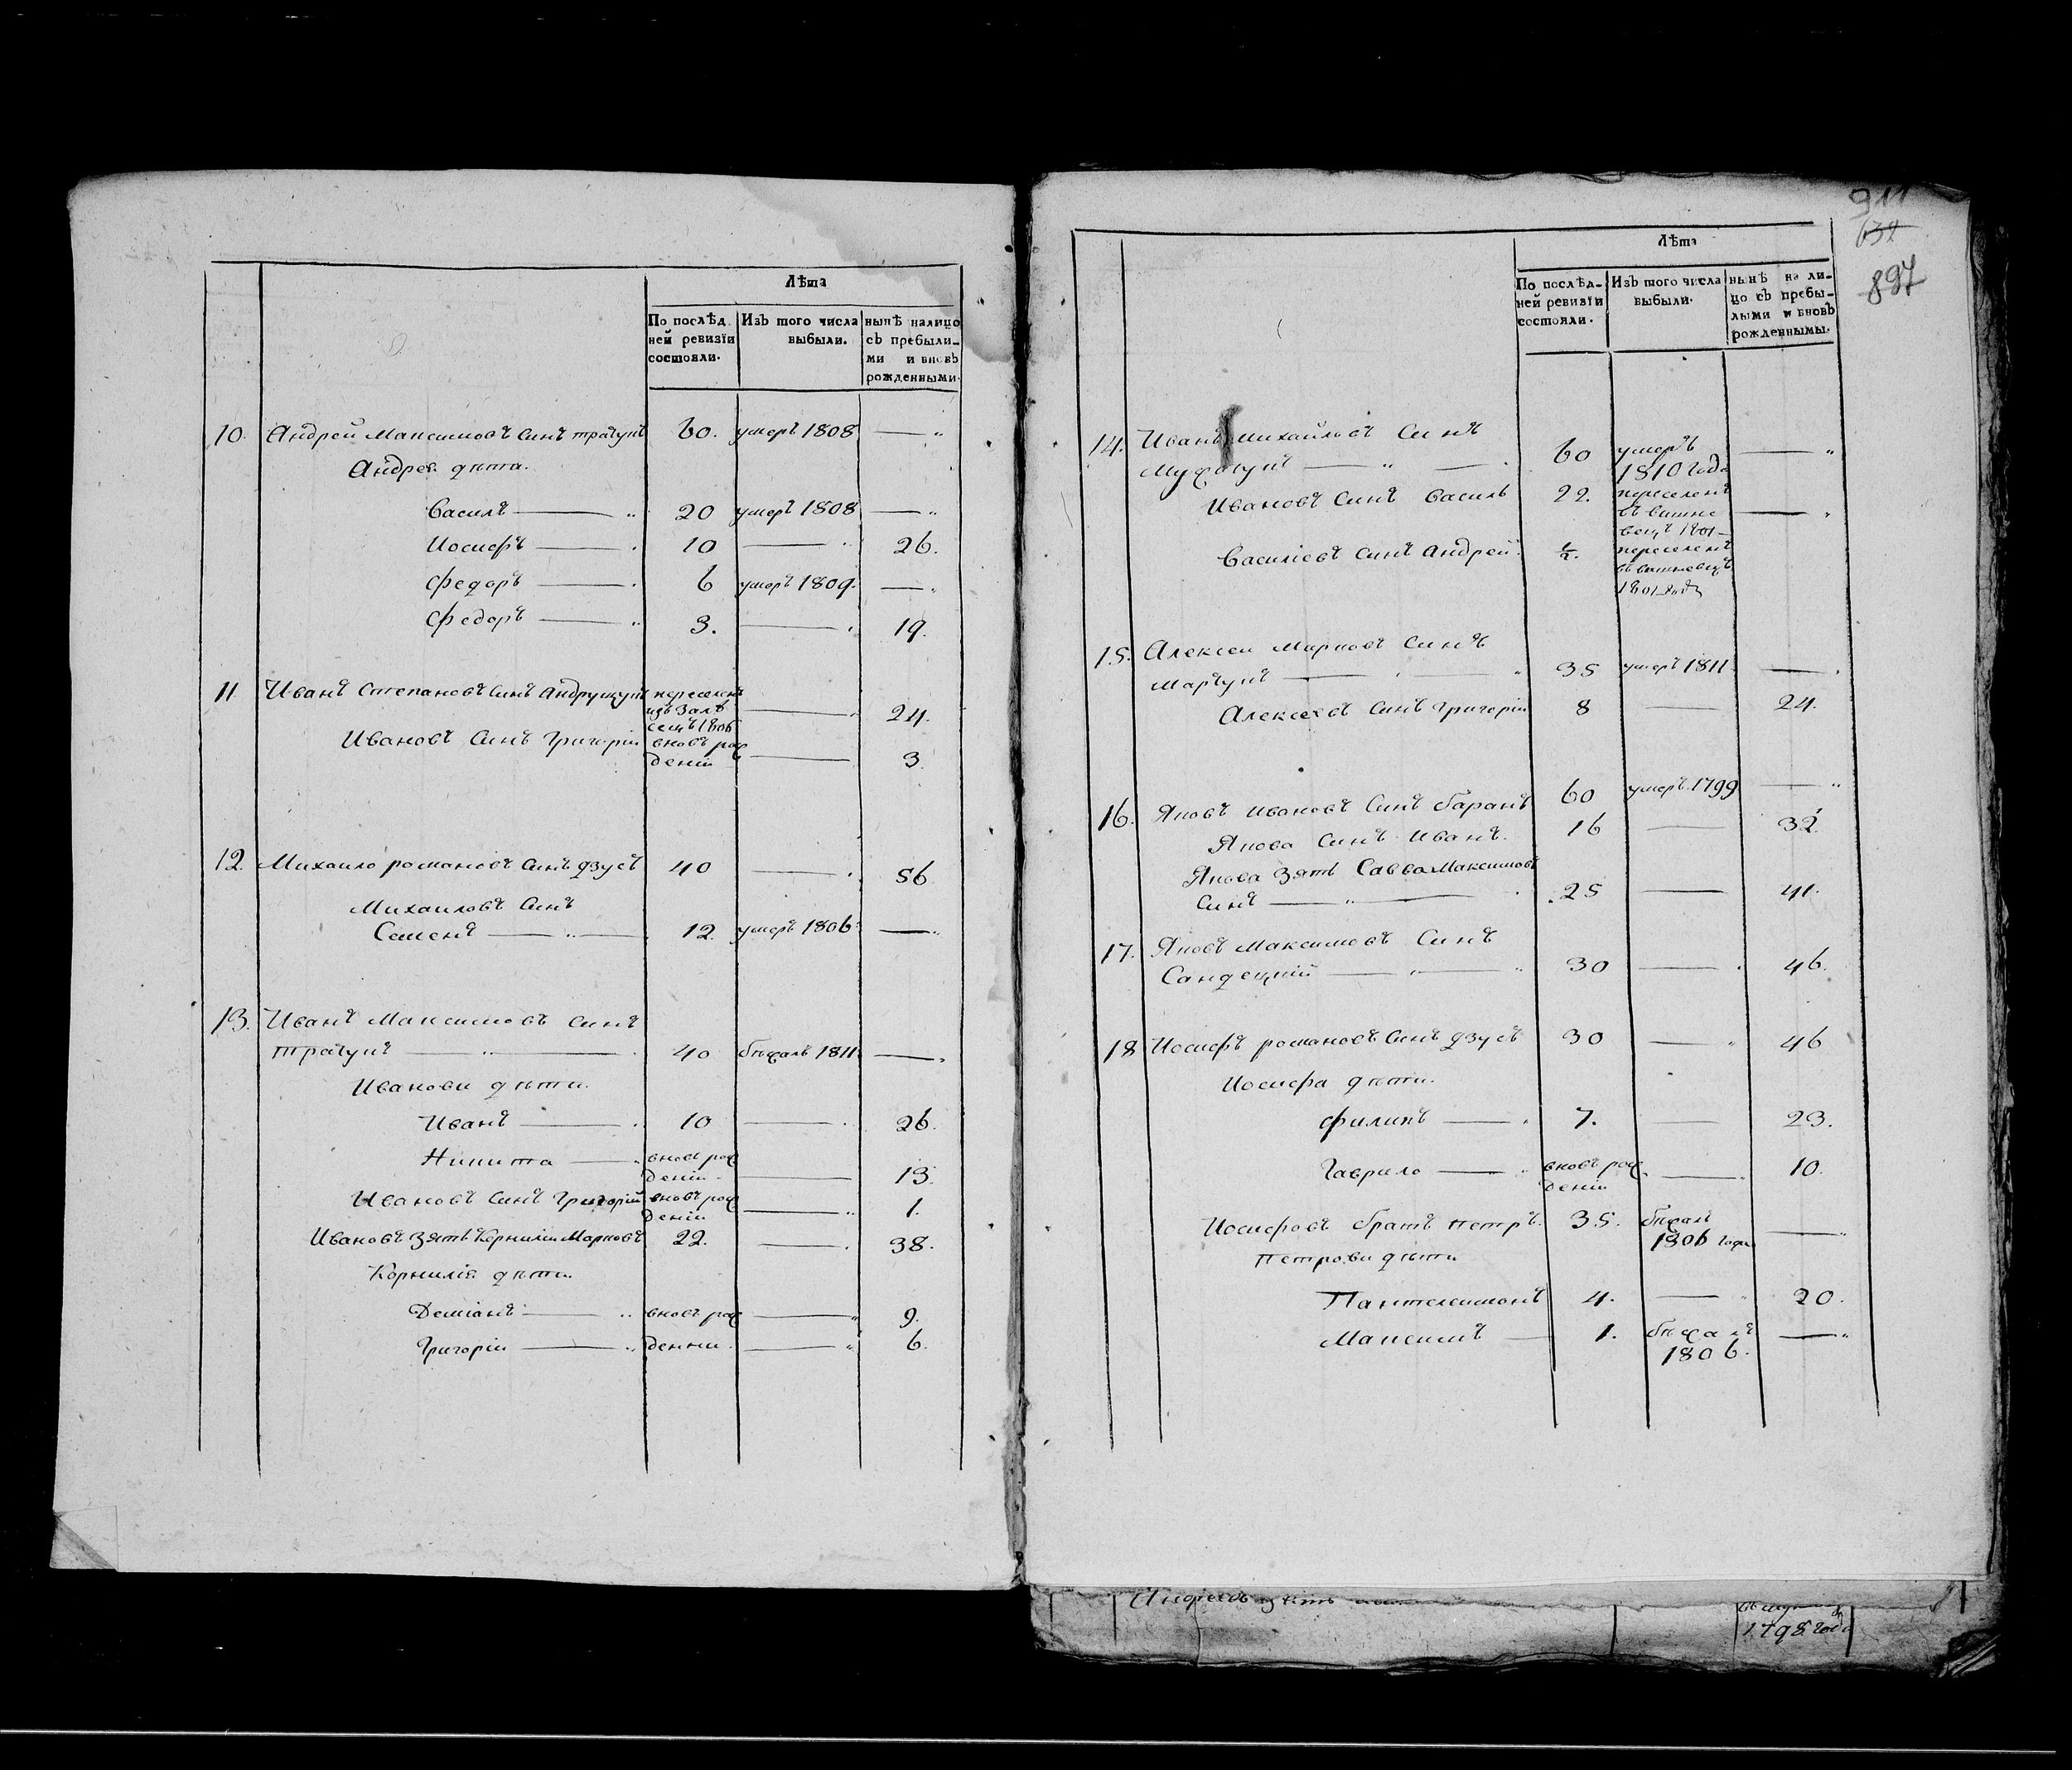 Лѣта
По послѣд.
ней ревизїи
состояли.
Изъ того числа
выбыли.
нынѣ налицо
съ прибыли-
ми и вновь
рожденными.
10. Андрей Максимовъ Синъ трачукъ 60. умеръ 1808 — „
Андрея дѣти.
Василъ — „ 20 умеръ 1808 — „
Иосифъ — 10 — 26.
Федоръ — 6 умеръ 1809. — „
Федоръ — „ 3. — „ 19.
11 Иванъ Степановъ Синъ Андрущукъ переселенъ
изъ Залѣ — 24.
сецъ 1806
Ивановъ Синъ Григорій вновь рож
деній — 3.
12. Михаило романовъ Синъ дзусъ 40 — 56
Михаиловъ Синъ
Семенъ — „ — 12. умеръ 1806 — „
13. Иванъ Максимовъ Синъ
трачукъ — „ — 40 бѣжалъ 1811 — „
Иванови дѣти.
Иванъ — 10 — 26.
Никита — вновь рож
деній — 13.
Ивановъ Синъ Григорій вновь рож
деній — „ 1.
Ивановъ Зять Корнилій Марковъ 22. — 38.
Корнилія дѣти.
Деміанъ — „ вновь рож — „ 9.
Григорій — „ денни. — „ 6.
911
634
897
Лѣта
По послѣд-
ней ревизїи
состояли.
Изъ того числа
выбыли.
нынѣ на ли-
цо съ прибы-
лыми и вновь
рожденнымы.
14. Иванъ Михайловъ Синъ
— „ — 60 умеръ
1810 года — „
Ивановъ Синъ Василь 22. переселенъ
въ вишне — „
вецъ 1801
Василіевъ Синъ Андрей. ½. переселенъ
въ вишневецъ
1801 года
15. Алексей Марковъ Синъ
Марчукъ — 35 умеръ 1811 —
Алексеевъ Синъ Григорій 8 — 24.
16. Яковъ Ивановъ Синъ баранъ 60 умеръ 1799 — „
Якова Синъ Иванъ. 16 — 32.
Якова Зять Савва Максимовъ
Синъ — „ — 25 — 41.
17. Яковъ Максимовъ Синъ
Сандецкій — „ — 30 — 46.
18 Иосифъ романовъ Синъ дзусъ 30 — „ 46
Иосифа дѣти.
Филипъ — 7. — 23.
Гаврило — вновь рож — 10.
деній
Иосифовъ братъ петръ. 35. бѣжал
1806 года — „
Петрови дѣти
Пантелеимонъ 4. — „ 20.
Максимъ — 1. бѣжалъ — „
1806.
зять
1798 года